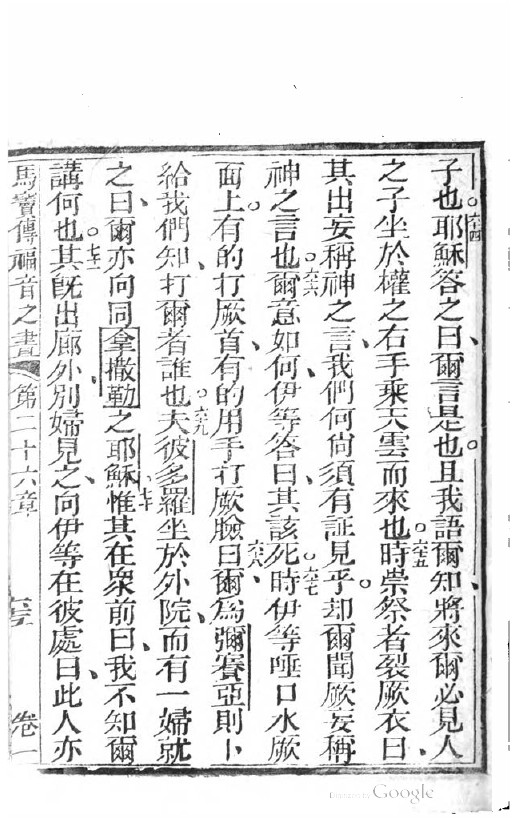 子也。六十四耶穌答之曰、爾言是也。且我語爾知、將來爾必見人
之子坐於權之右手乘天雲而來也。六十五時祟祭者裂厥衣曰、
其出妄稱神之言、我們何尙須有証見乎。却爾聞厥妄稱
神之言也。六十六爾意如何、伊等答曰、其該死。六十七時伊等唾口水厥
面上。有的打厥首、有的用手打厥臉六十八曰、爾爲彌賽亞則卜
給我們知、打爾者誰也。六十九夫彼多羅坐於外院、而有一婦就
之曰、爾亦向同拿撒勒之耶穌七十惟其在衆前曰、我不知爾
講何也。七十一其旣出廊外、別婦見之、向伊等在彼處曰、此人亦
馬竇傳福音之書 第二十六章 卷一
Digitized by Google